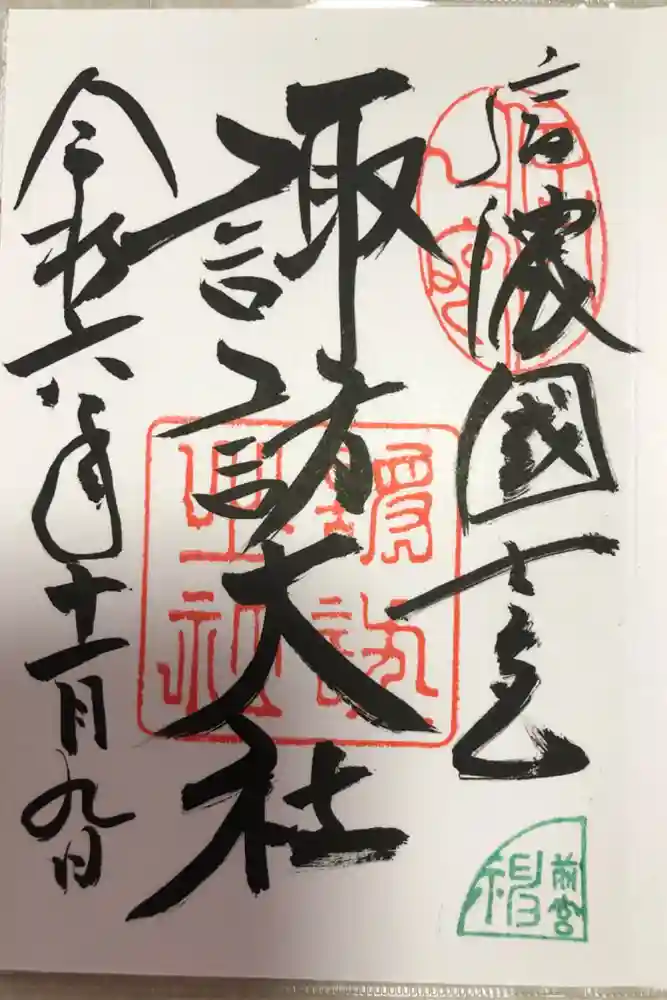 信濃國一之宮
諏訪大社
令和六年十一月九日
諏訪
大社
前宮